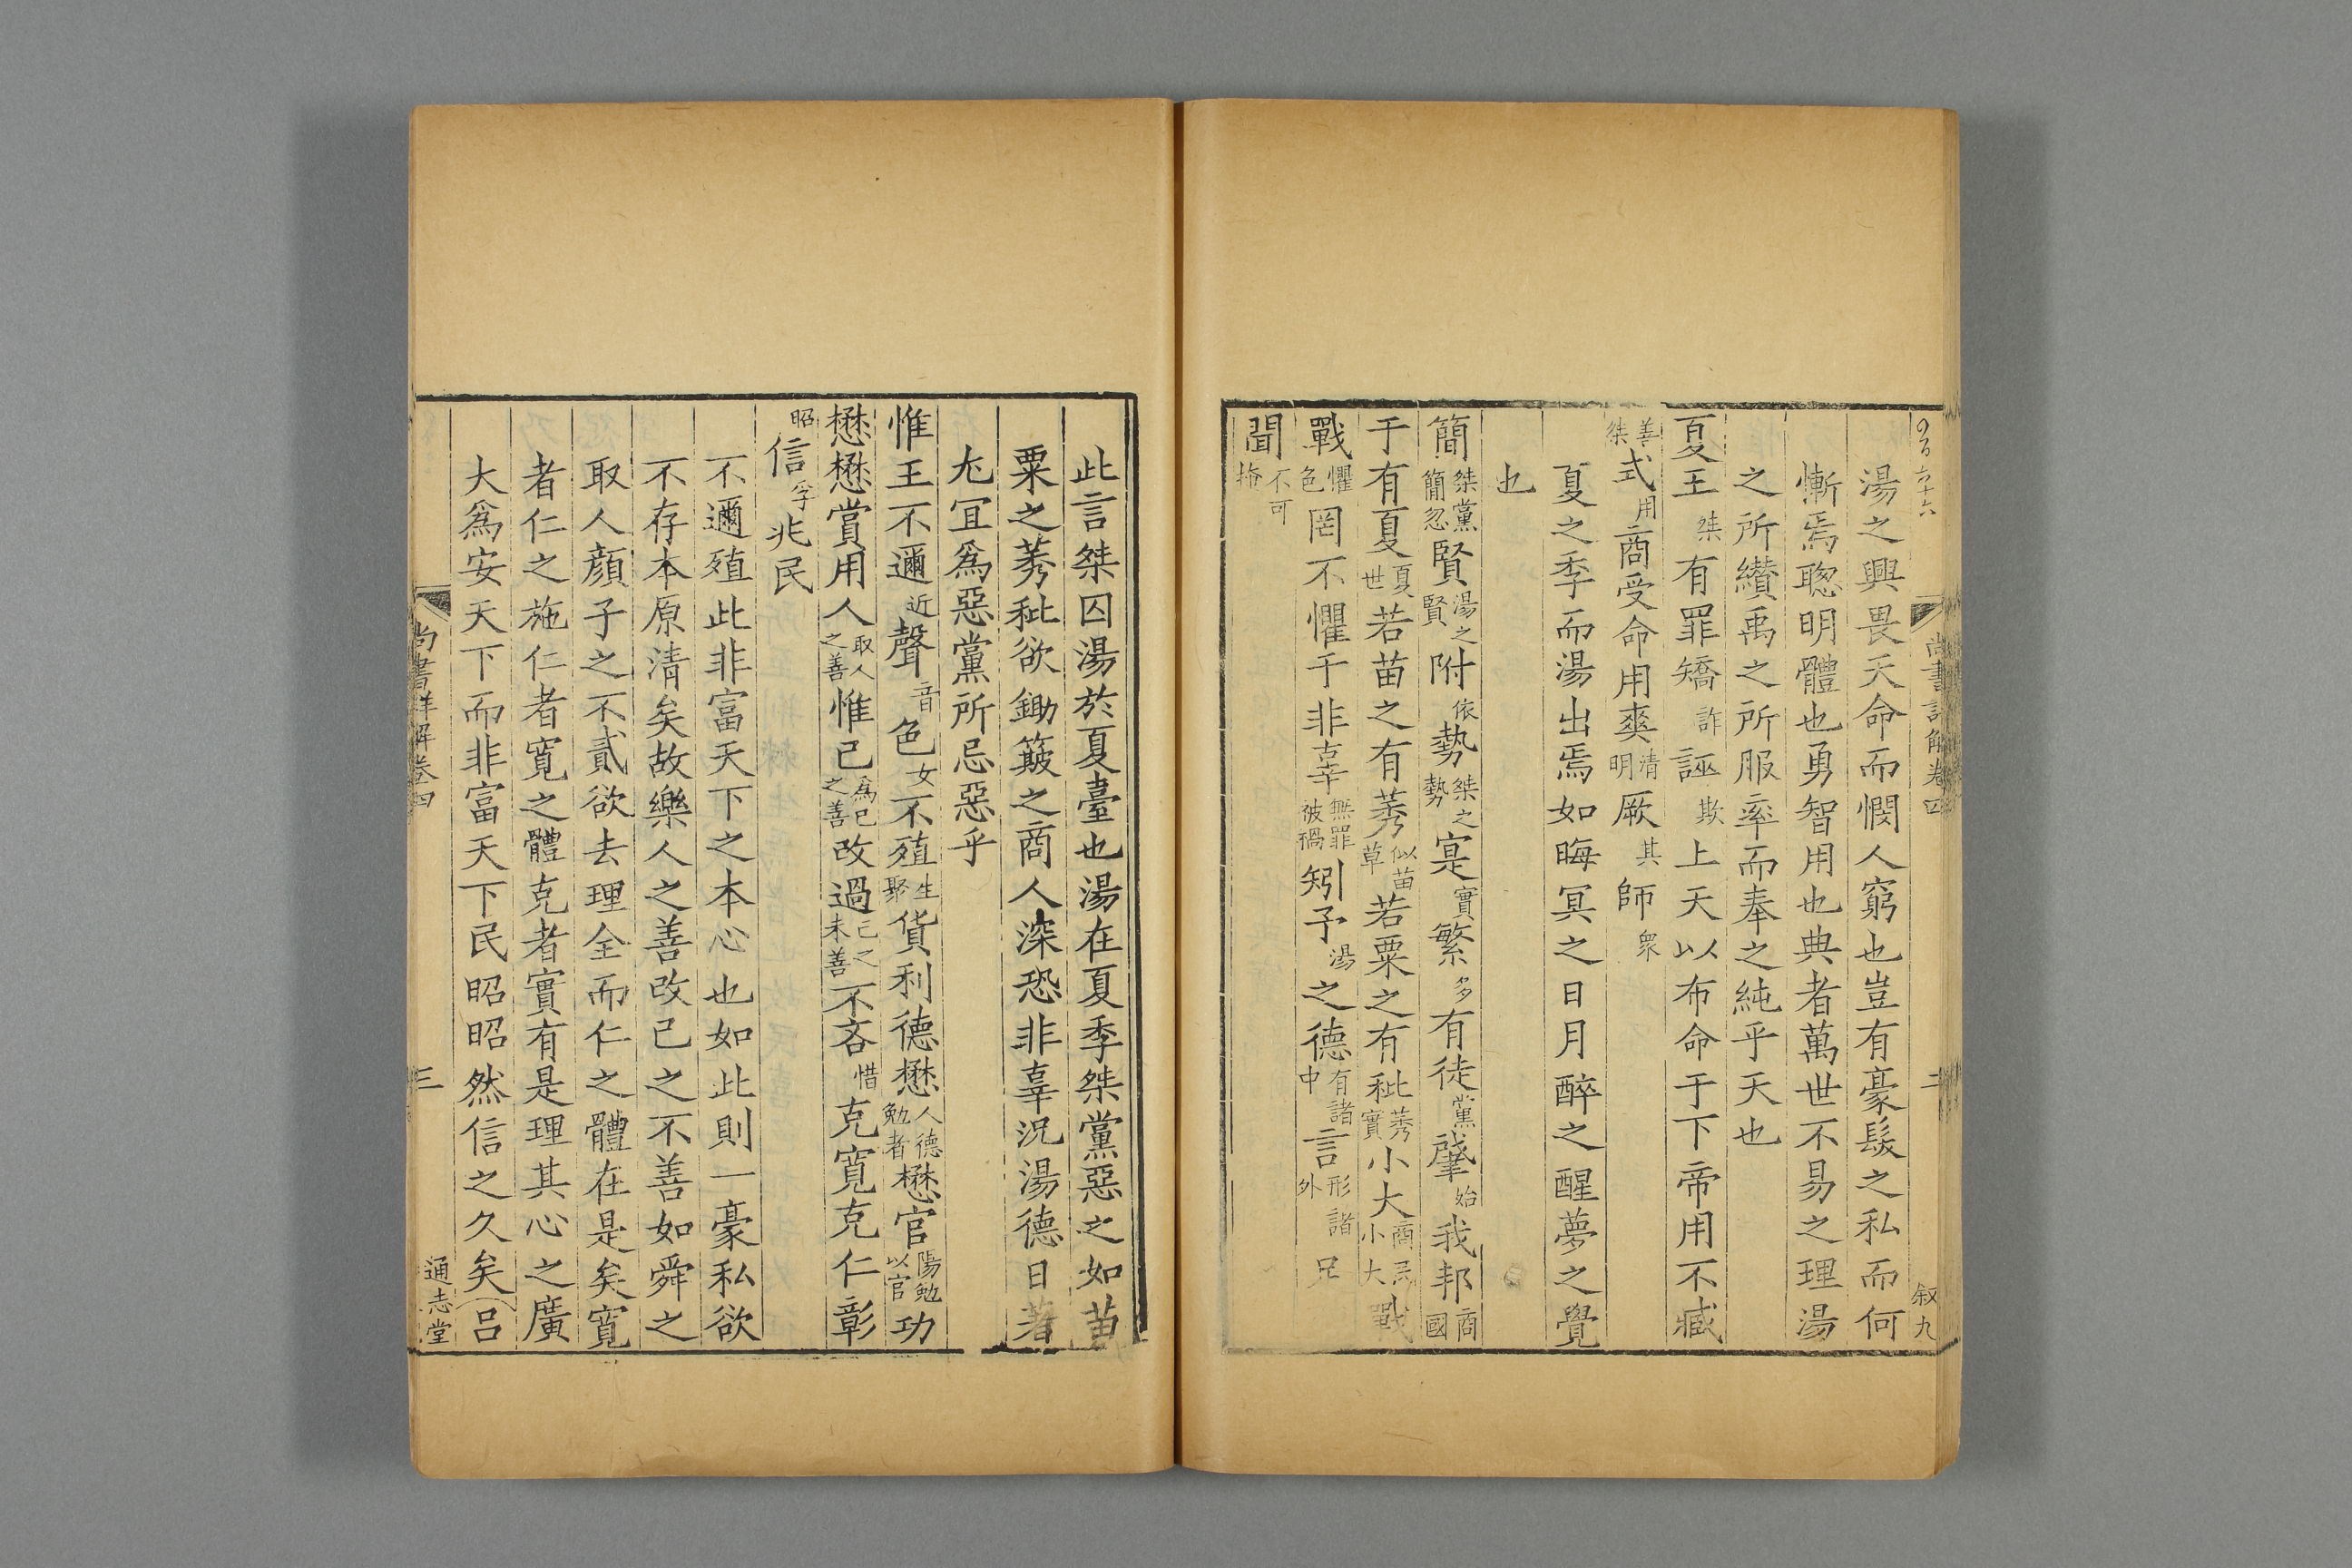 尚書詳解卷四 二 叙九
湯之興畏天命而憫人窮也豈有豪髮之私而何
慚焉聰明體也勇智用也典者萬世不易之理湯
之所纘禹之所服率而奉之純乎天也
夏王桀有罪矯詐誣欺上天以布命于下帝用不臧
善桀式用商受命用爽清明厥其師衆
夏之季而湯出焉如晦冥之日月醉之醒夢之覺
也
簡桀黨簡忽賢湯之賢附依勢桀之勢寔實繁多有徒黨肇始我邦商國
于有夏夏世若苗之有莠似苗草若粟之有秕莠實小大商民小大戰
戰懼色罔不懼于非辜無罪被禍矧予湯之德有諸中言形諸外
聞不可掩
此言桀囚湯於夏臺也湯在夏季桀黨惡之如苗
粟之莠秕欲鋤簸之商人深恐非辜況湯德日著
尤宜爲惡黨所忌惡乎
惟王不邇近聲音色女不殖生聚貨利德懋人德勉者懋官陽勉以官功
懋懋賞用人取人之善惟已爲已之善改過已之未善不吝惜克寛克仁彰
昭信孚兆民
不邇殖此非富天下之本心也如此則一豪私欲
不存本原清矣故樂人之善改已之不善如舜之
取人顔子之不貳欲去理全而仁之體在是矣寛
者仁之施仁者寛之體克者實有是理其心之廣
大爲安天下而非富天下民昭昭然信之久矣呂
尚書詳解卷四 三 通志堂